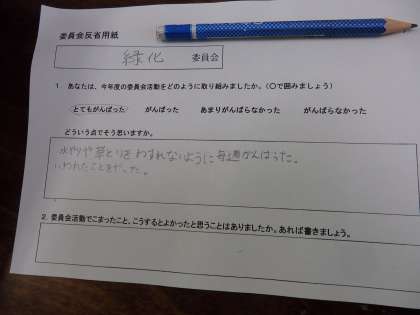 委員会反省用紙
緑化 委員会
1 あなたは、今年度の委員会活動をどのように取り組みましたか。(〇で囲みましょう)
とてもがんばった がんばった あまりがんばらなかった がんばらなかった
どういう点でそう思いますか。
水やりや草とりをわすれないように毎週がんばった。
いわれたことをやった。
2. 委員会活動でこまったこと、こうするとよかったと思うことはありましたか。あれば書きましょう。